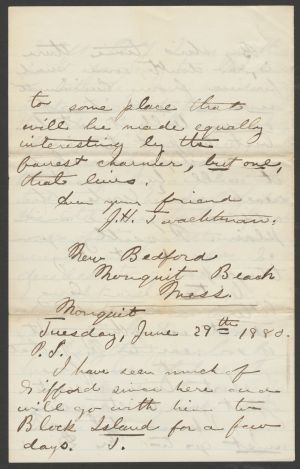 to some place that
will be made equally
interesting by the
fairest charmer, but one,
that lives.
Ever your friend
J.H. Twachtman.
New Bedford
Nonquit Beach
Mass.
Nonquit
Tuesday, June 29th 1880.
P.S.
I have seen much of
Gifford since here and
will go with him to
Block Island for a few
days. J.